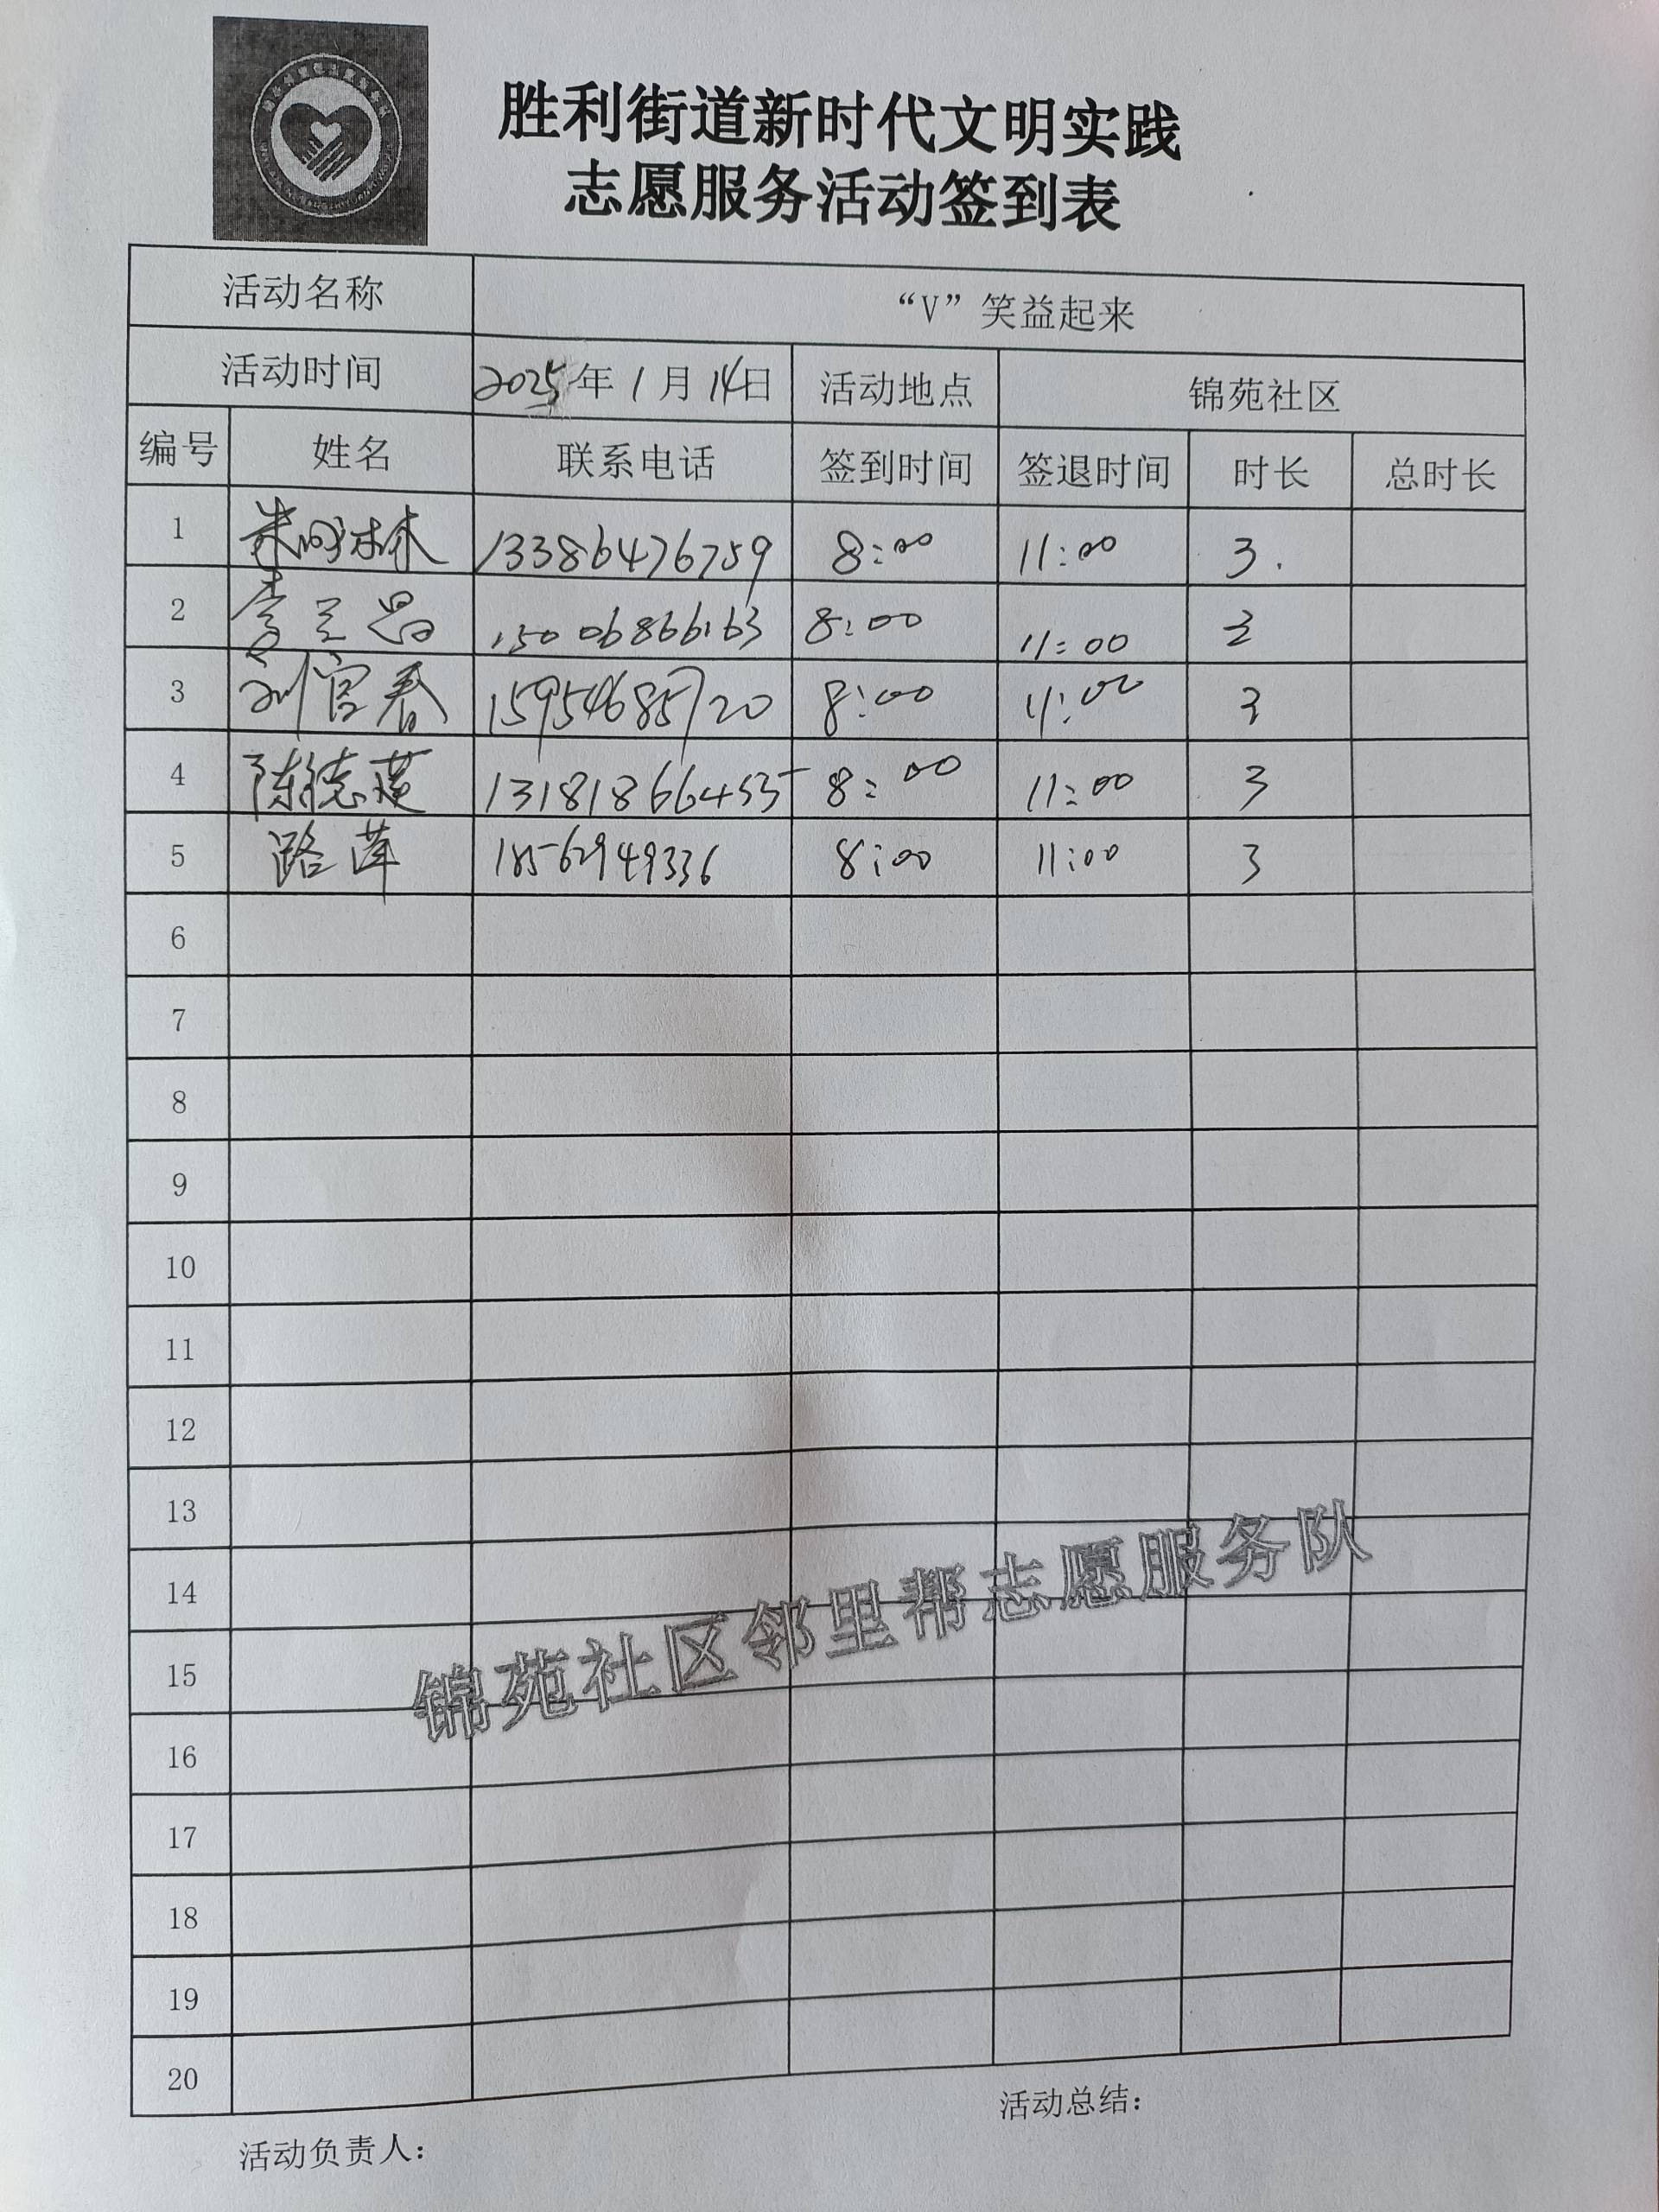 胜利街道新时代文明实践
志愿服务活动签到表
活动名称 “V”笑益起来
活动时间 2025年1月14日 活动地点 锦苑社区
编号 姓名 联系电话 签到时间 签退时间 时长 总时长
1 13386476759 8:00 11:00 3.
2 15006866163 8:00 11:00 3
3 刘官春 15954685720 8:00 11:00 3
4 陈德莲 13181866455 8:00 11:00 3
5 路莲 18562949336 8:00 11:00 3
6
7
8
9
10
11
12
13
14
锦苑社区邻里帮志愿服务队
15
16
17
18
19
20
活动总结：
活动负责人：